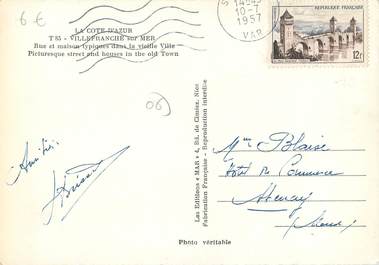 6 €
LA COTE D'AZUR
T 85 - VILLEFRANCHE sur MER
Rue et maison typiques dans la vieille Ville
Picturesque street and houses in the old Town
10-7
1957
VAR
REPUBLIQUE FRANÇAISE
12F
06
Les Editions "MAR" 4, Bd. de Cimiez, Nice
Fabrication Française - Reproduction interdite
Mme Blaise
Hôtel du Commerce
Photo véritable